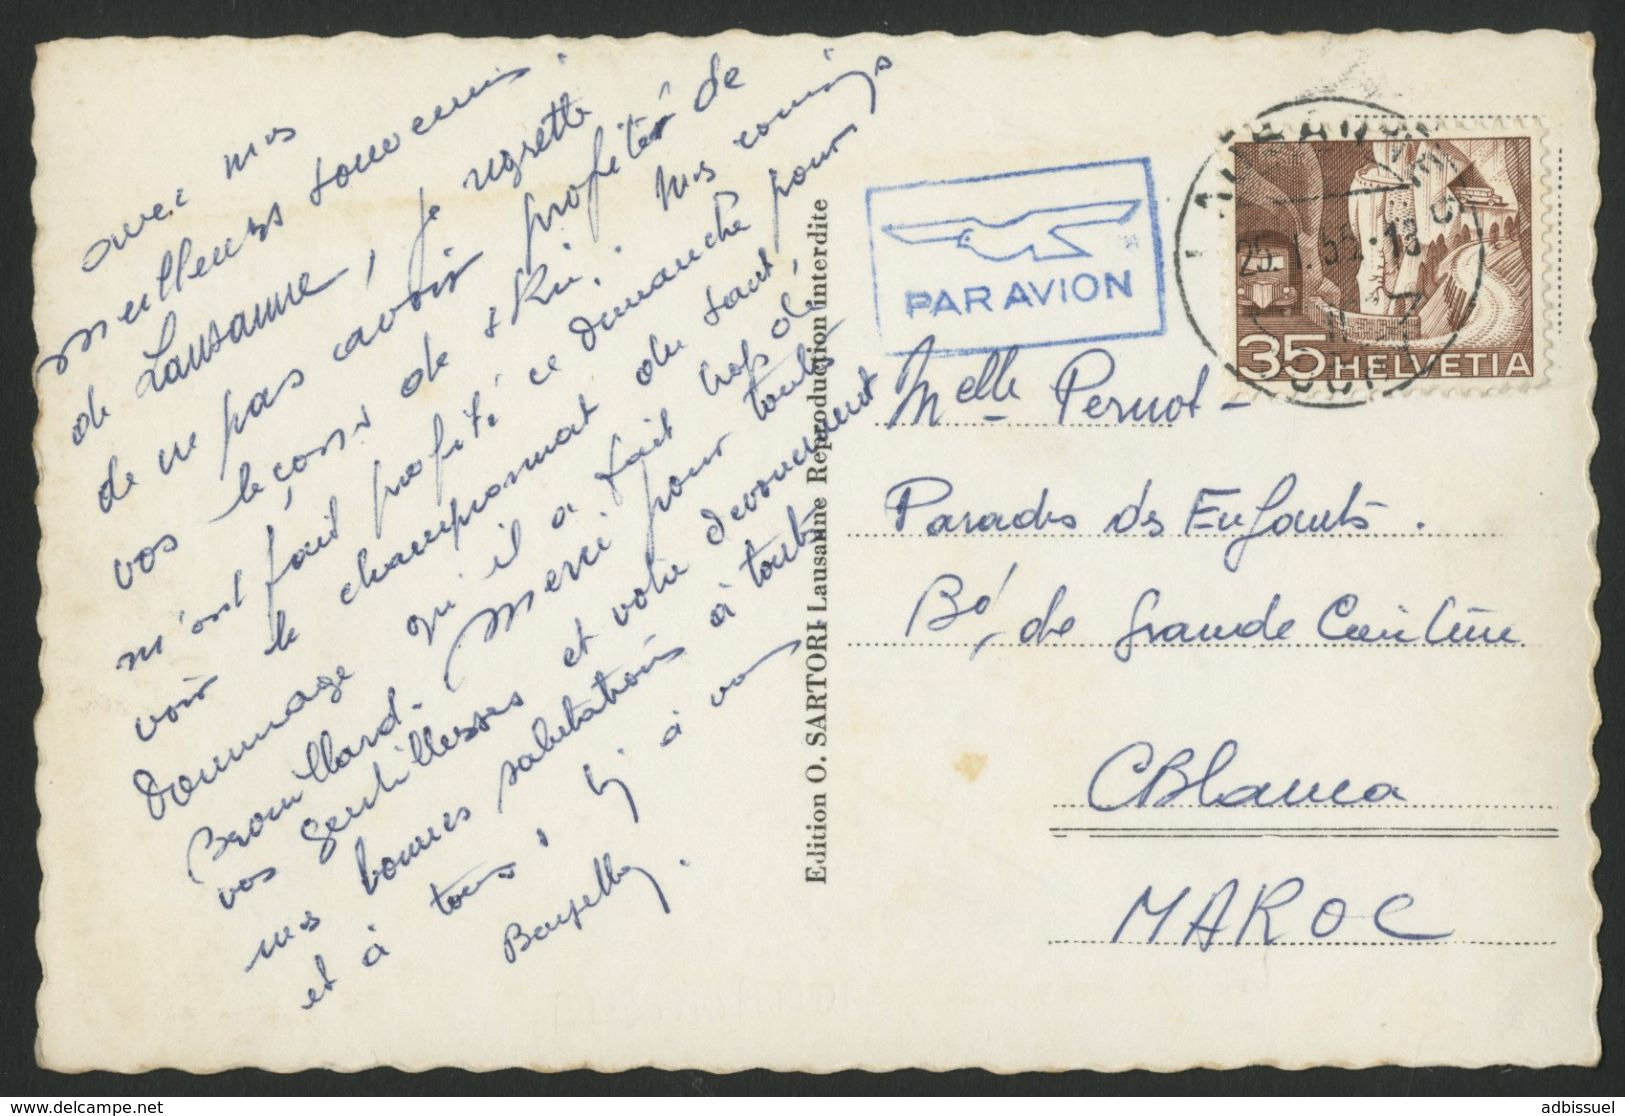 avec mes
meilleurs souvenirs.
de Lausanne, je regrette
de ne pas avoir profiter de
vos leçons de skii. Mes cousins
m'ont fait profité ce dimanche pour
voir le championnat du saut,
dommage qu'il a fait trop de
Brouillard. Merci pour toutes
vos gentillesses et votre devouement
mes bonnes salutations à toutes
et à tous, à vous
Edition O. SARTORI Lausanne Reproduction interdite
PAR AVION
LAUSANNE
25.1.55-18
35 HELVETIA
Melle Pernot -
Paradis des Enfants.
Bd, de
CBlanca
MAROC
adbissuel
delcampe.net